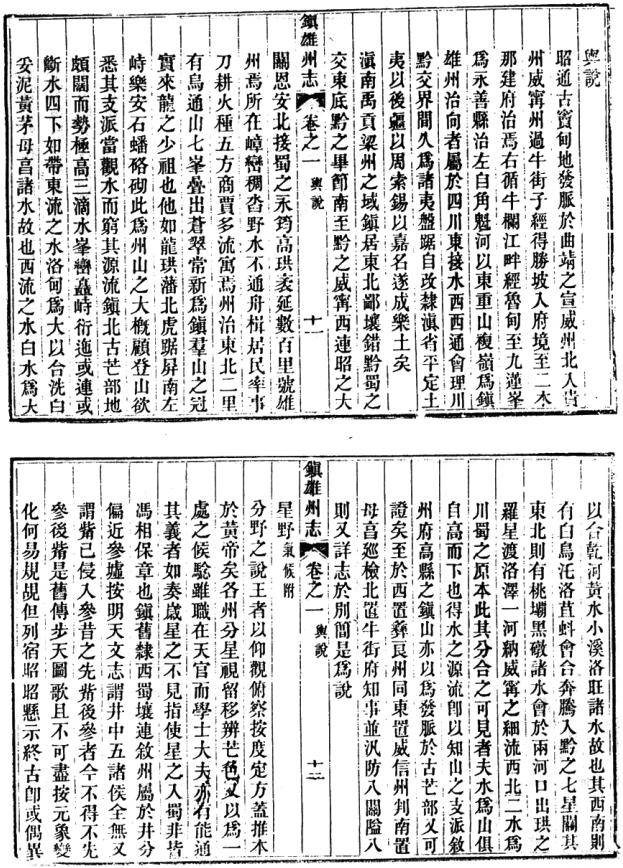 輿說
昭通古竇甸地發脈於曲靖之宣威州北入貴
州威寗州過牛街子經得勝坡入府境至二木
那建府治焉右循牛欄江畔經魯甸至九蓮峯
爲永善縣治左自角魁河以東重山複嶺爲鎭
雄州治向者屬於四川東接水西西通會理川
黔交界間久爲諸夷盤踞自改隸滇省平定土
夷以後疆以周索錫以嘉名遂成樂土矣
滇南禹貢梁州之域鎭居東北鄙壤錯黔蜀之
交東底黔之畢節南至黔之威寗西連昭之大
鎭雄州志
卷之一
輿說
十一
關恩安北接蜀之永筠高珙袤延數百里號雄
州焉所在嶂巒稠沓野水不通舟楫居民率事
刀耕火種五方商賈多流寓焉州治東北二里
有烏通山七峯疊出蒼翠常新爲鎭羣山之冠
實來龍之少祖也他如龍珙藩北虎踞屏南左
峙樂安石蟠硌砌此爲州山之大槪顧登山欲
悉其支派當觀水而窮其源流鎭北古芒部地
頗闊而勢極高三滴水峯巒矗峙衍迤或連或
斷水四下如帶東流之水洛甸爲大以合洗白
妥泥黃茅母㫯諸水故也西流之水白水爲大
以合乾河黃水小溪洛旺諸水故也其西南則
有白烏汑洛苴蚪會合奔騰入黔之七星關其
東北則有桃壩黑墩諸水會於兩河口出珙之
羅星渡洛澤一河納威寗之細流西北二水爲
川蜀之原本此其分合之可見者夫水爲山俱
自高而下也得水之源流卽以知山之支派敘
州府高縣之鎭山亦以爲發脈於古芒部又可
證矣至於西置彝良州同東置威信州判南置
母㫯巡檢北置牛街府知事並汛防八關隘八
鎭雄州志
卷之一
輿說
十二
則又詳志於別簡是爲說
星野氣候附
分野之說王者以仰觀俯察按度定方蓋推本
於黃帝矣各州分星視留移辨芒色又以爲一
處之候騐雖職在天官而學士大夫亦有能通
其義者如奏歲星之不見指使星之入蜀非皆
馮相保章也鎭舊隸西蜀壤連敘州屬於井分
偏近參墟按明天文志謂井中五諸侯全無又
謂觜已侵入參昔之先觜後參者今不得不先
參後觜是舊傳步天圖歌且不可盡按元象變
化何易規覘但列宿昭昭懸示終古卽或偶異